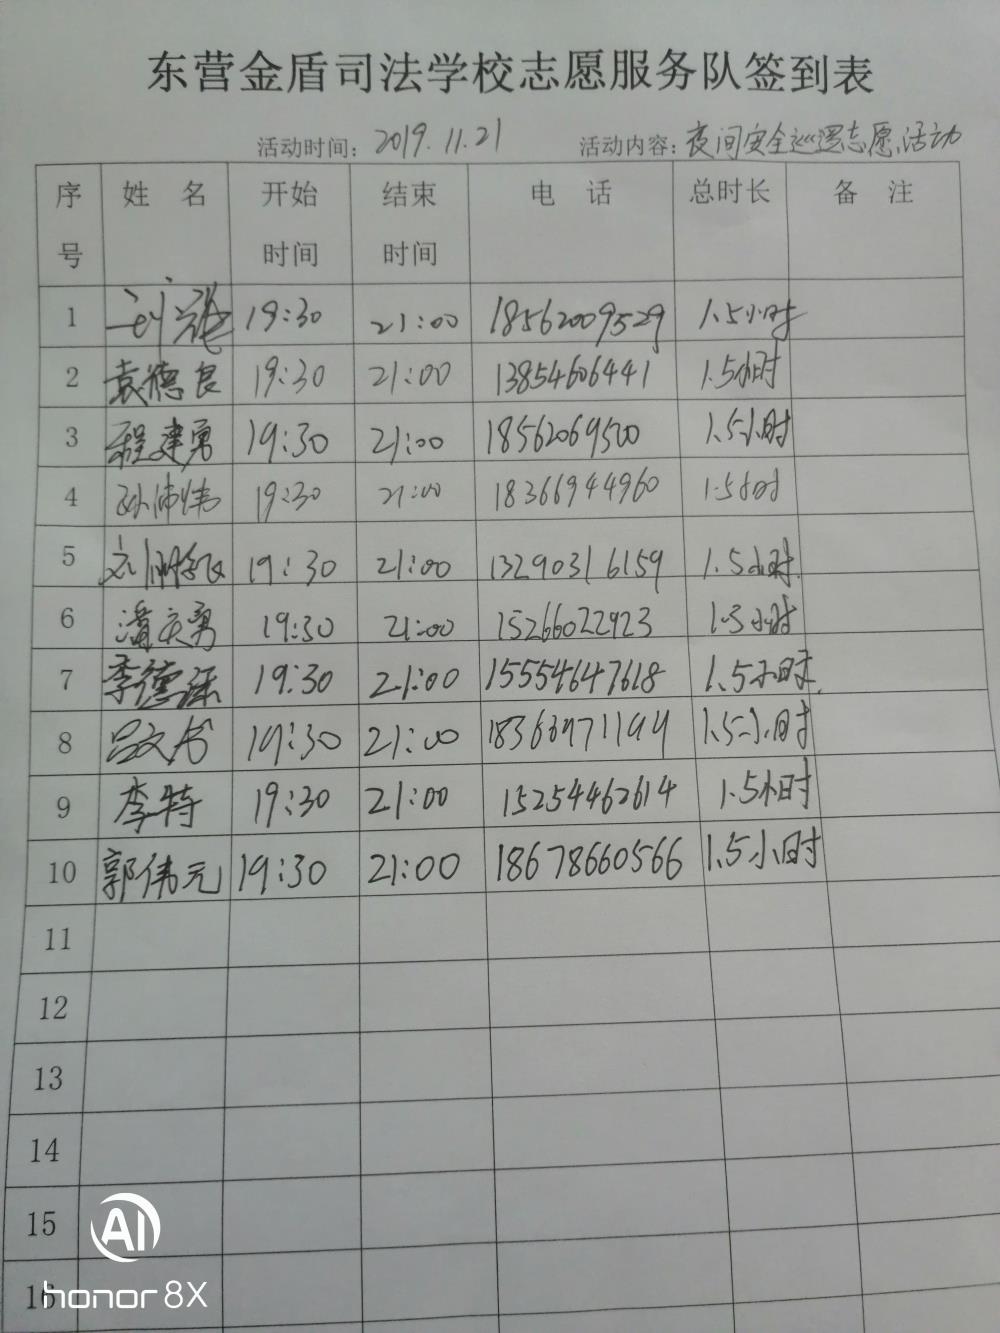 东营金盾司法学校志愿服务队签到表
活动时间: 2019.11.21 活动内容: 夜间安全巡逻志愿活动
序号 姓 名 开始时间 结束时间 电 话 总时长 备 注
1 19:30 21:00 18562009529 1.5小时
2 袁德良 19:30 21:00 13854606441 1.5小时
3 程建勇 19:30 21:00 18562069500 1.5小时
4 孙沛炜 19:30 21:00 18366944960 1.5小时
5 19:30 21:00 13290316159 1.5小时
6 潘庆勇 19:30 21:00 15266022923 1.5小时
7 李德 19:30 21:00 15554647618 1.5小时
8 吕文 19:30 21:00 1.5小时
9 李特 19:30 21:00 15254462614 1.5小时
10 郭伟元 19:30 21:00 18678660566 1.5小时
11
12
13
14
15
16
AI
honor 8X